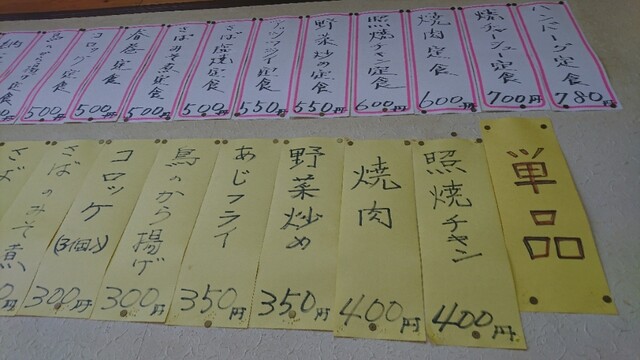 ハンバーグ定食
780円
焼チャーシュー定食
700円
焼肉定食
600円
照焼チキン定食
600円
野菜炒め定食
550円
アジフライ定食
550円
さば塩焼定食
500円
さばみそ煮定食
500円
春巻定食
500円
コロッケ定食
500円
鳥のから揚げ定食
500円
定食
単品
照焼チキン
400円
焼肉
400円
野菜炒め
350円
あじフライ
350円
鳥のから揚げ
300円
コロッケ
(3個入)
300円
さばのみそ煮
300円
さば